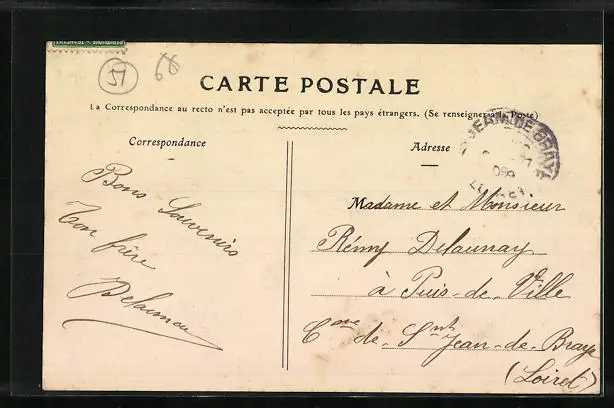 51
68
CARTE POSTALE
La Correspondance au recto n'est pas acceptée par tous les pays étrangers. (Se renseigner à la Poste)
Correspondance
Adresse
Bons Souvenirs
Ton frère
Delaunay
Madame et Monsieur
Rémy Delaunay
à Puis-de-Ville
Cne de-St-Jean-de-Braye
(Loiret)
ST JEAN-DE-BRAYE
09
LOIRET